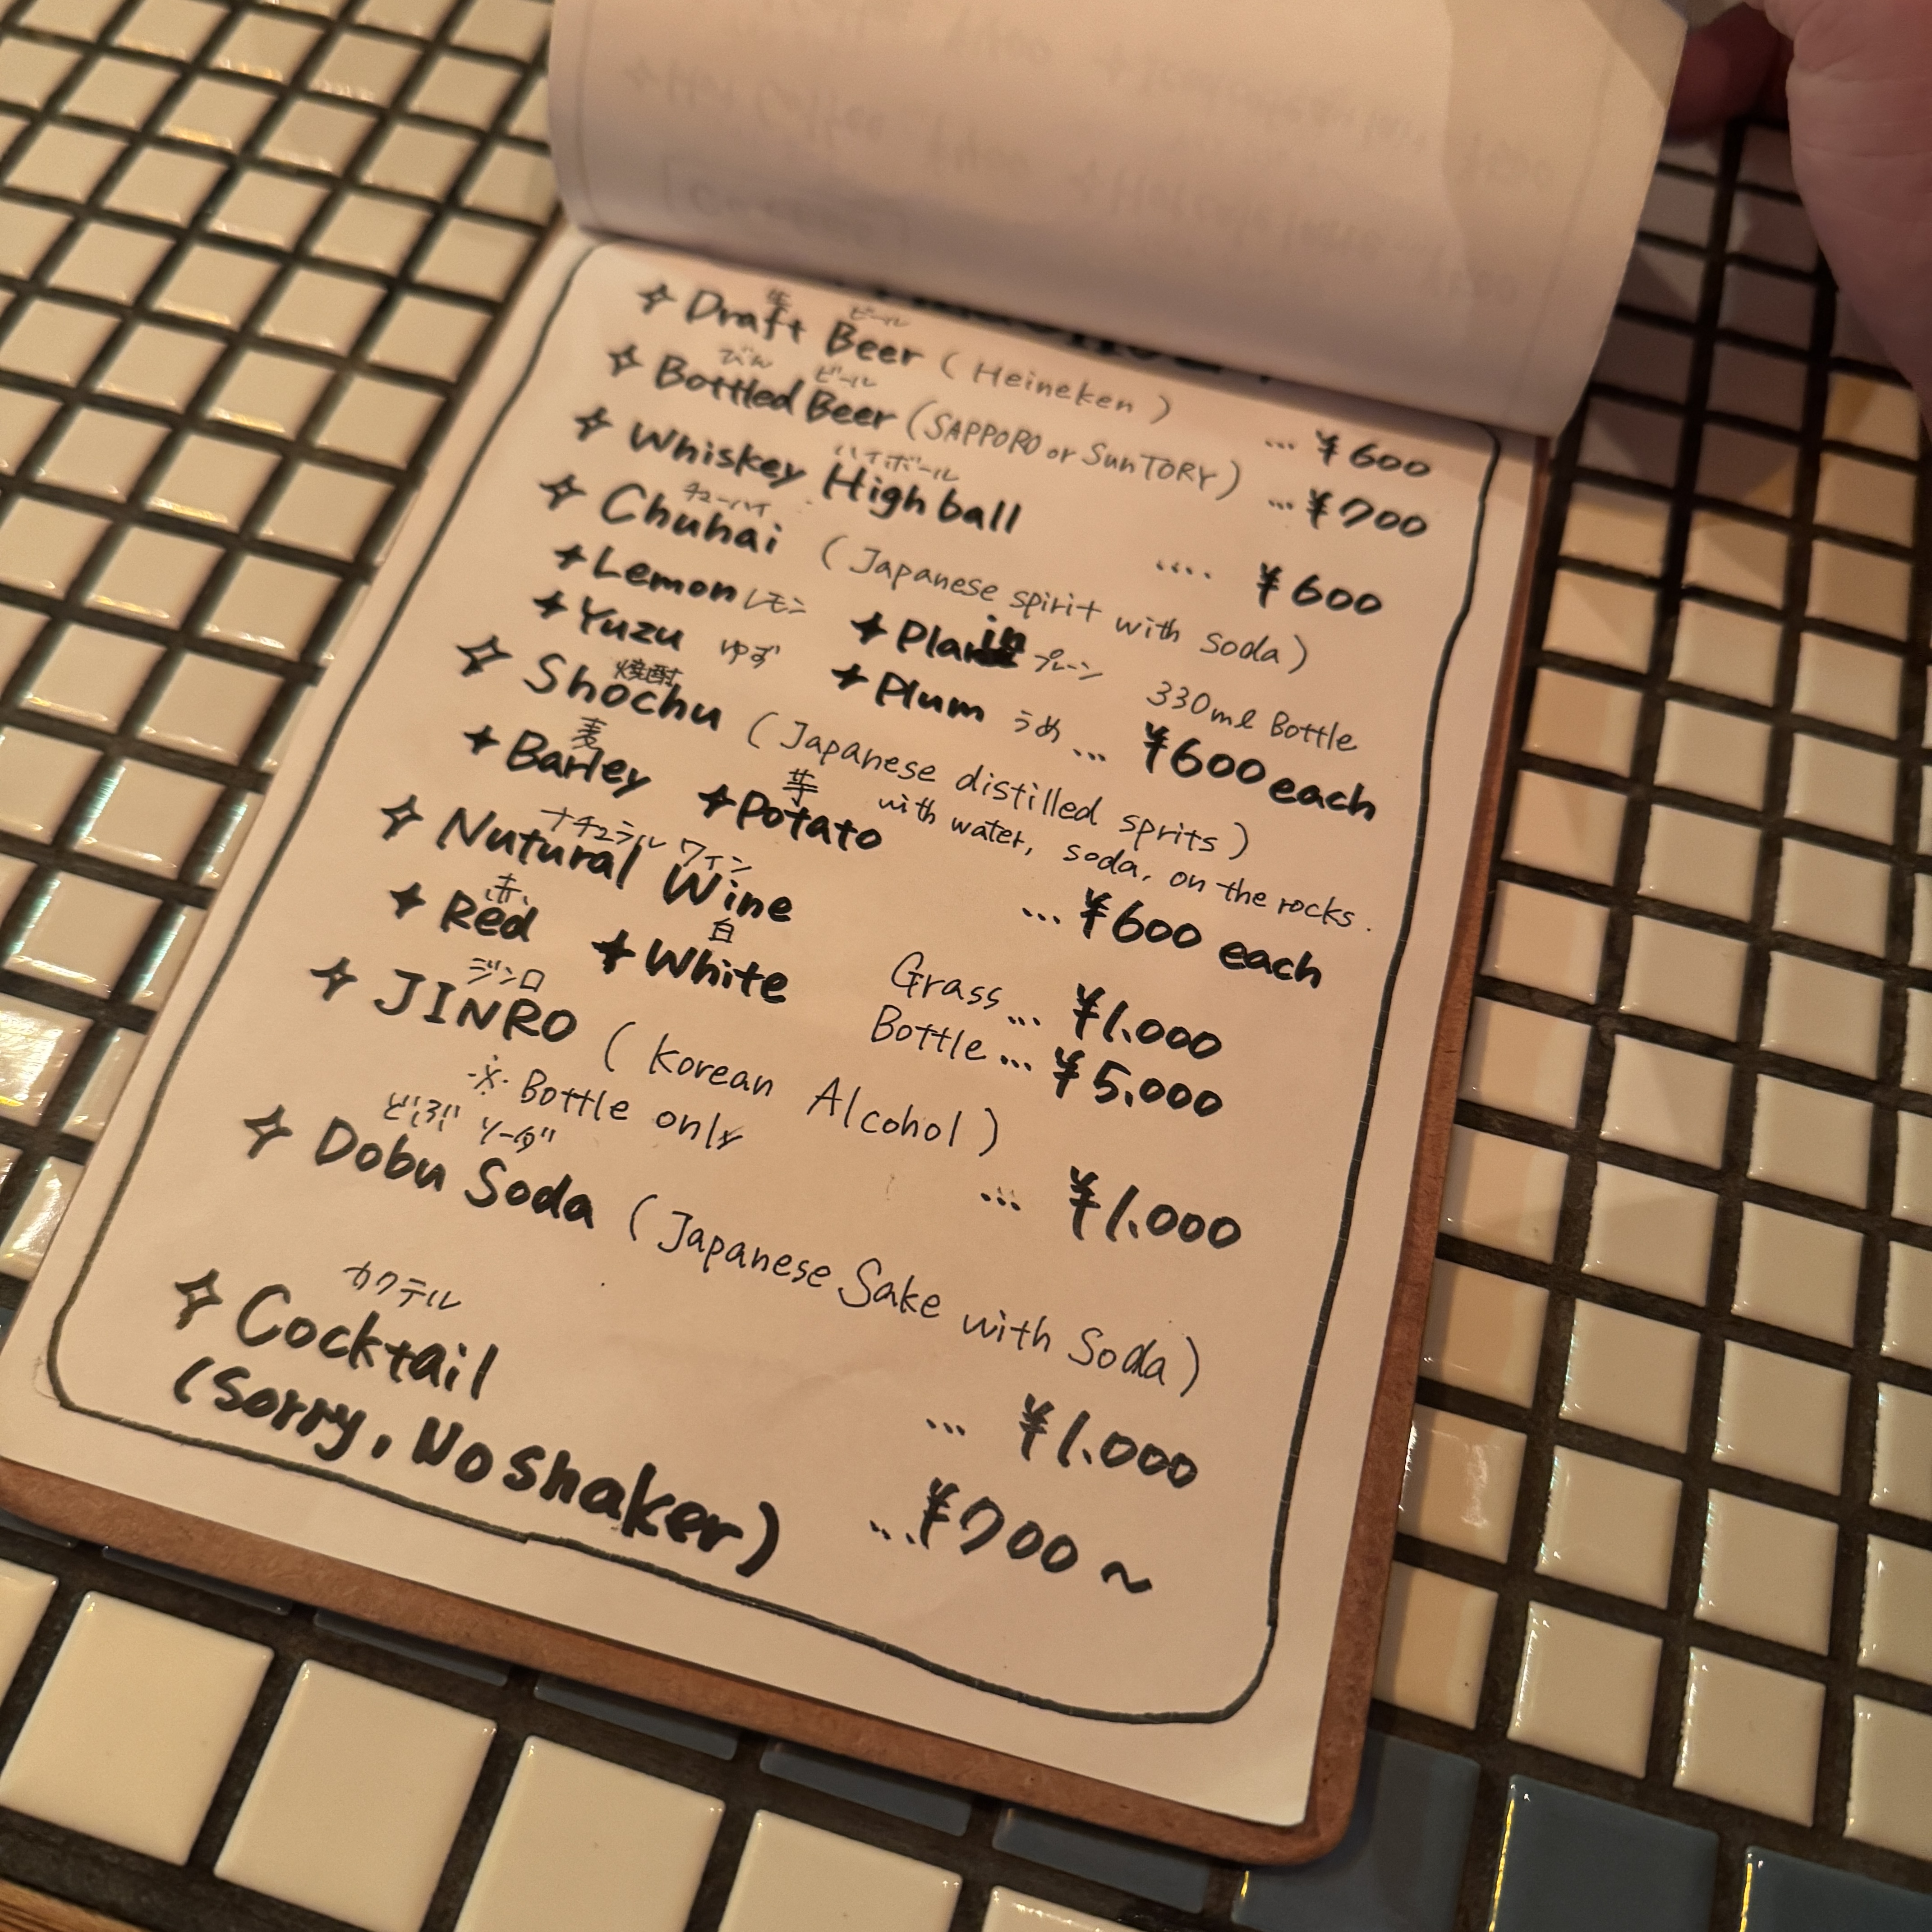 生 ビール
✧ Draft Beer (Heineken) ... ¥600
びん ビール
✧ Bottled Beer (SAPPORO or SunTORY) ... ¥700
ハイボール
✧ Whiskey Highball .... ¥600
チューハイ
✧ Chuhai (Japanese spirit with soda)
✦ Lemon レモン ✦ Plain プレーン 330ml Bottle
✦ Yuzu ゆず ✦ Plum うめ ... ¥600 each
焼酎
✧ Shochu (Japanese distilled sprits)
麦 芋 with water, soda, on the rocks.
✦ Barley ✦ Potato ... ¥600 each
ナチュラル ワイン
✧ Nutural Wine Grass ... ¥1.000
赤 白
✦ Red ✦ White Bottle ... ¥5.000
ジンロ
✧ JINRO (Korean Alcohol)
※ Bottle only ... ¥1.000
どぶ ソーダ
✧ Dobu Soda (Japanese Sake with Soda) ... ¥1.000
カクテル
✧ Cocktail ... ¥700 ~
(Sorry, No shaker)